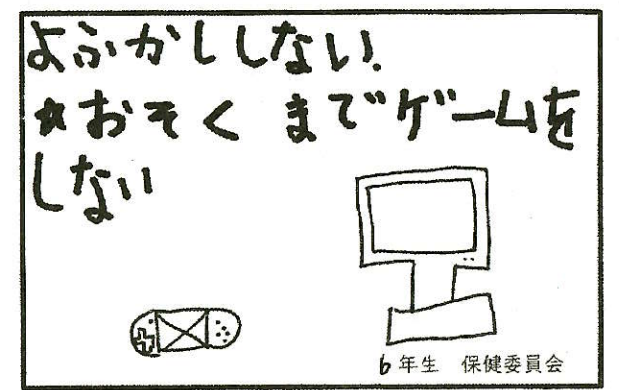 よふかししない.
☆おそくまでゲームを
しない
6年生 保健委員会